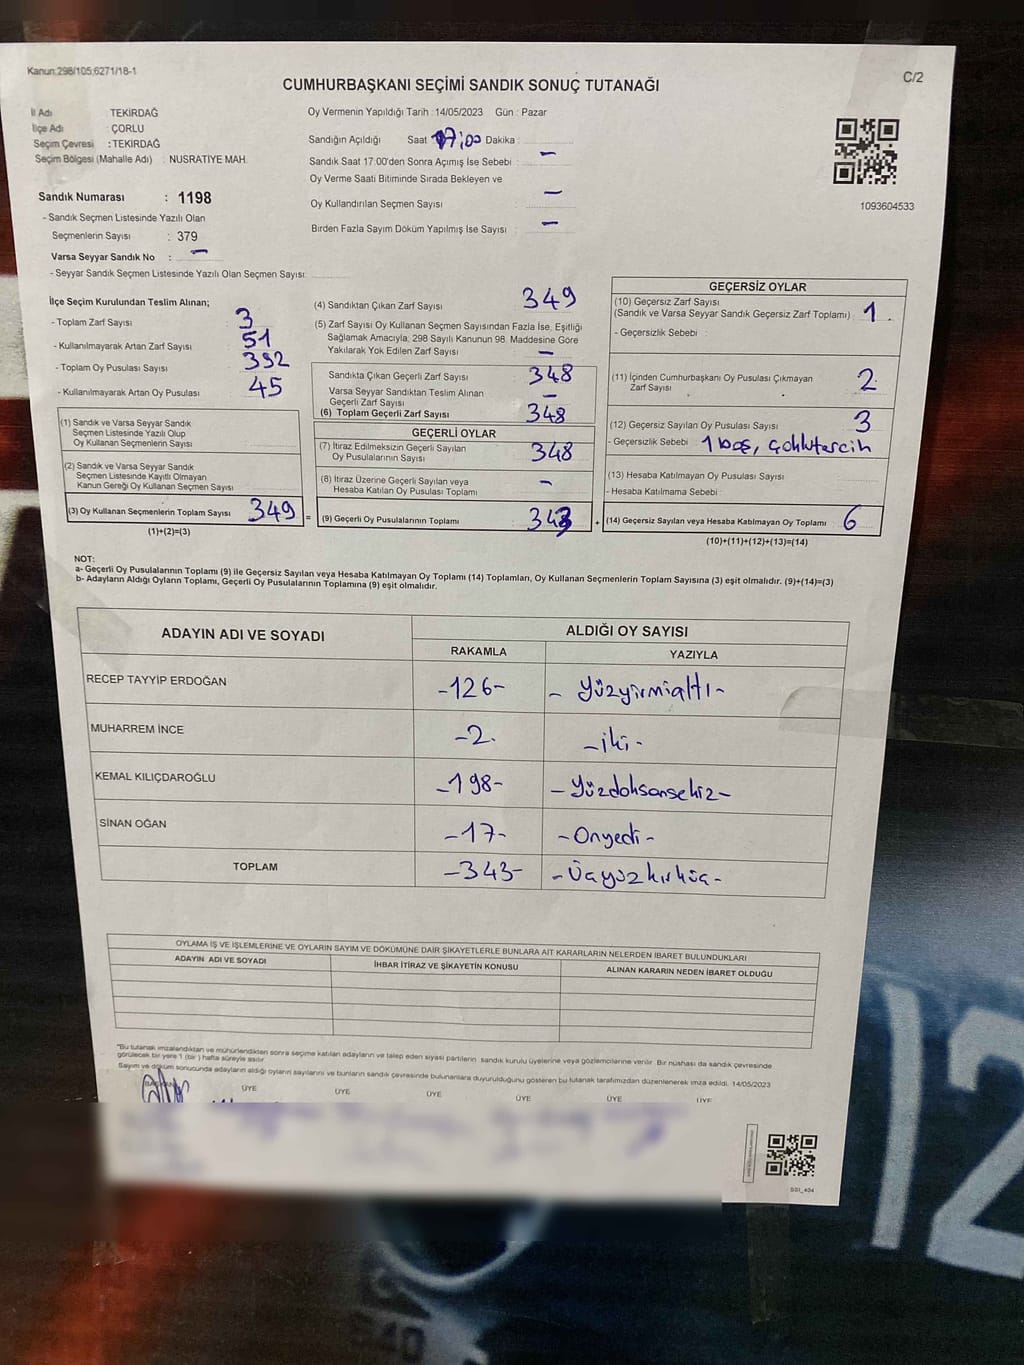 Kanun:298/105;6271/18-1
C/2
CUMHURBAŞKANI SEÇİMİ SANDIK SONUÇ TUTANAĞI
İl Adı : TEKİRDAĞ
İlçe Adı : ÇORLU
Seçim Çevresi : TEKİRDAĞ
Seçim Bölgesi (Mahalle Adı) : NUSRATIYE MAH.
Oy Vermenin Yapıldığı Tarih : 14/05/2023 Gün : Pazar
Sandığın Açıldığı Saat 17:00 Dakika :
Sandık Saat 17:00'den Sonra Açımış İse Sebebi : —
Oy Verme Saati Bitiminde Sırada Bekleyen ve
Oy Kullandırılan Seçmen Sayısı : —
Birden Fazla Sayım Döküm Yapılmış İse Sayısı : —
1093604533
Sandık Numarası : 1198
- Sandık Seçmen Listesinde Yazılı Olan
Seçmenlerin Sayısı : 379
Varsa Seyyar Sandık No : —
- Seyyar Sandık Seçmen Listesinde Yazılı Olan Seçmen Sayısı:
İlçe Seçim Kurulundan Teslim Alınan;
- Toplam Zarf Sayısı 3
- Kullanılmayarak Artan Zarf Sayısı 51
- Toplam Oy Pusulası Sayısı 392
- Kullanılmayarak Artan Oy Pusulası 45
(1) Sandık ve Varsa Seyyar Sandık
Seçmen Listesinde Yazılı Olup
Oy Kullanan Seçmenlerin Sayısı
(2) Sandık ve Varsa Seyyar Sandık
Seçmen Listesinde Kayıtlı Olmayan
Kanun Gereği Oy Kullanan Seçmen Sayısı
(3) Oy Kullanan Seçmenlerin Toplam Sayısı 349 =
(1)+(2)=(3)
(4) Sandıktan Çıkan Zarf Sayısı 349
(5) Zarf Sayısı Oy Kullanan Seçmen Sayısından Fazla İse, Eşitliği
Sağlamak Amacıyla; 298 Sayılı Kanunun 98. Maddesine Göre
Yakılarak Yok Edilen Zarf Sayısı —
Sandıkta Çıkan Geçerli Zarf Sayısı 348
Varsa Seyyar Sandıktan Teslim Alınan
Geçerli Zarf Sayısı —
(6) Toplam Geçerli Zarf Sayısı 348
GEÇERLİ OYLAR
(7) İtiraz Edilmeksizin Geçerli Sayılan
Oy Pusulalarının Sayısı 348
(8) İtiraz Üzerine Geçerli Sayılan veya
Hesaba Katılan Oy Pusulası Toplamı —
(9) Geçerli Oy Pusulalarının Toplamı 343 +
GEÇERSİZ OYLAR
(10) Geçersiz Zarf Sayısı
(Sandık ve Varsa Seyyar Sandık Geçersiz Zarf Toplamı) 1
- Geçersizlik Sebebi :
(11) İçinden Cumhurbaşkanı Oy Pusulası Çıkmayan
Zarf Sayısı 2
(12) Geçersiz Sayılan Oy Pusulası Sayısı 3
- Geçersizlik Sebebi : 1 boş, çoklutercih
(13) Hesaba Katılmayan Oy Pusulası Sayısı
- Hesaba Katılmama Sebebi :
(14) Geçersiz Sayılan veya Hesaba Katılmayan Oy Toplamı 6
(10)+(11)+(12)+(13)=(14)
NOT:
a- Geçerli Oy Pusulalarının Toplamı (9) ile Geçersiz Sayılan veya Hesaba Katılmayan Oy Toplamı (14) Toplamları, Oy Kullanan Seçmenlerin Toplam Sayısına (3) eşit olmalıdır. (9)+(14)=(3)
b- Adayların Aldığı Oyların Toplamı, Geçerli Oy Pusulalarının Toplamına (9) eşit olmalıdır.
ADAYIN ADI VE SOYADI ALDIĞI OY SAYISI
RAKAMLA YAZIYLA
RECEP TAYYİP ERDOĞAN -126- - Yüzyirmialtı -
MUHARREM İNCE -2- - iki -
KEMAL KILIÇDAROĞLU -198- - Yüzdoksansekiz -
SİNAN OĞAN -17- - Onyedi -
TOPLAM -343- - Üçyüzkırküç -
OYLAMA İŞ VE İŞLEMLERİNE VE OYLARIN SAYIM VE DÖKÜMÜNE DAİR ŞİKAYETLERLE BUNLARA AİT KARARLARIN NELERDEN İBARET BULUNDUKLARI
ADAYIN ADI VE SOYADI İHBAR İTİRAZ VE ŞİKAYETİN KONUSU ALINAN KARARIN NEDEN İBARET OLDUĞU
"Bu tutanak imzalandıktan ve mühürlendikten sonra seçime katılan adayların ve talep eden siyasi partilerin sandık kurulu üyelerine veya gözlemcilerine verilir. Bir nüshası da sandık çevresinde
görülecek bir yere 1 (bir ) hafta süreyle asılır
Sayım ve döküm sonucunda adayların aldığı oyların sayılarını ve bunların sandık çevresinde bulunanlara duyurulduğunu gösteren bu tutanak tarafımızdan düzenlenerek imza edildi. 14/05/2023
BAŞKAN ÜYE ÜYE ÜYE ÜYE ÜYE ÜYE
12